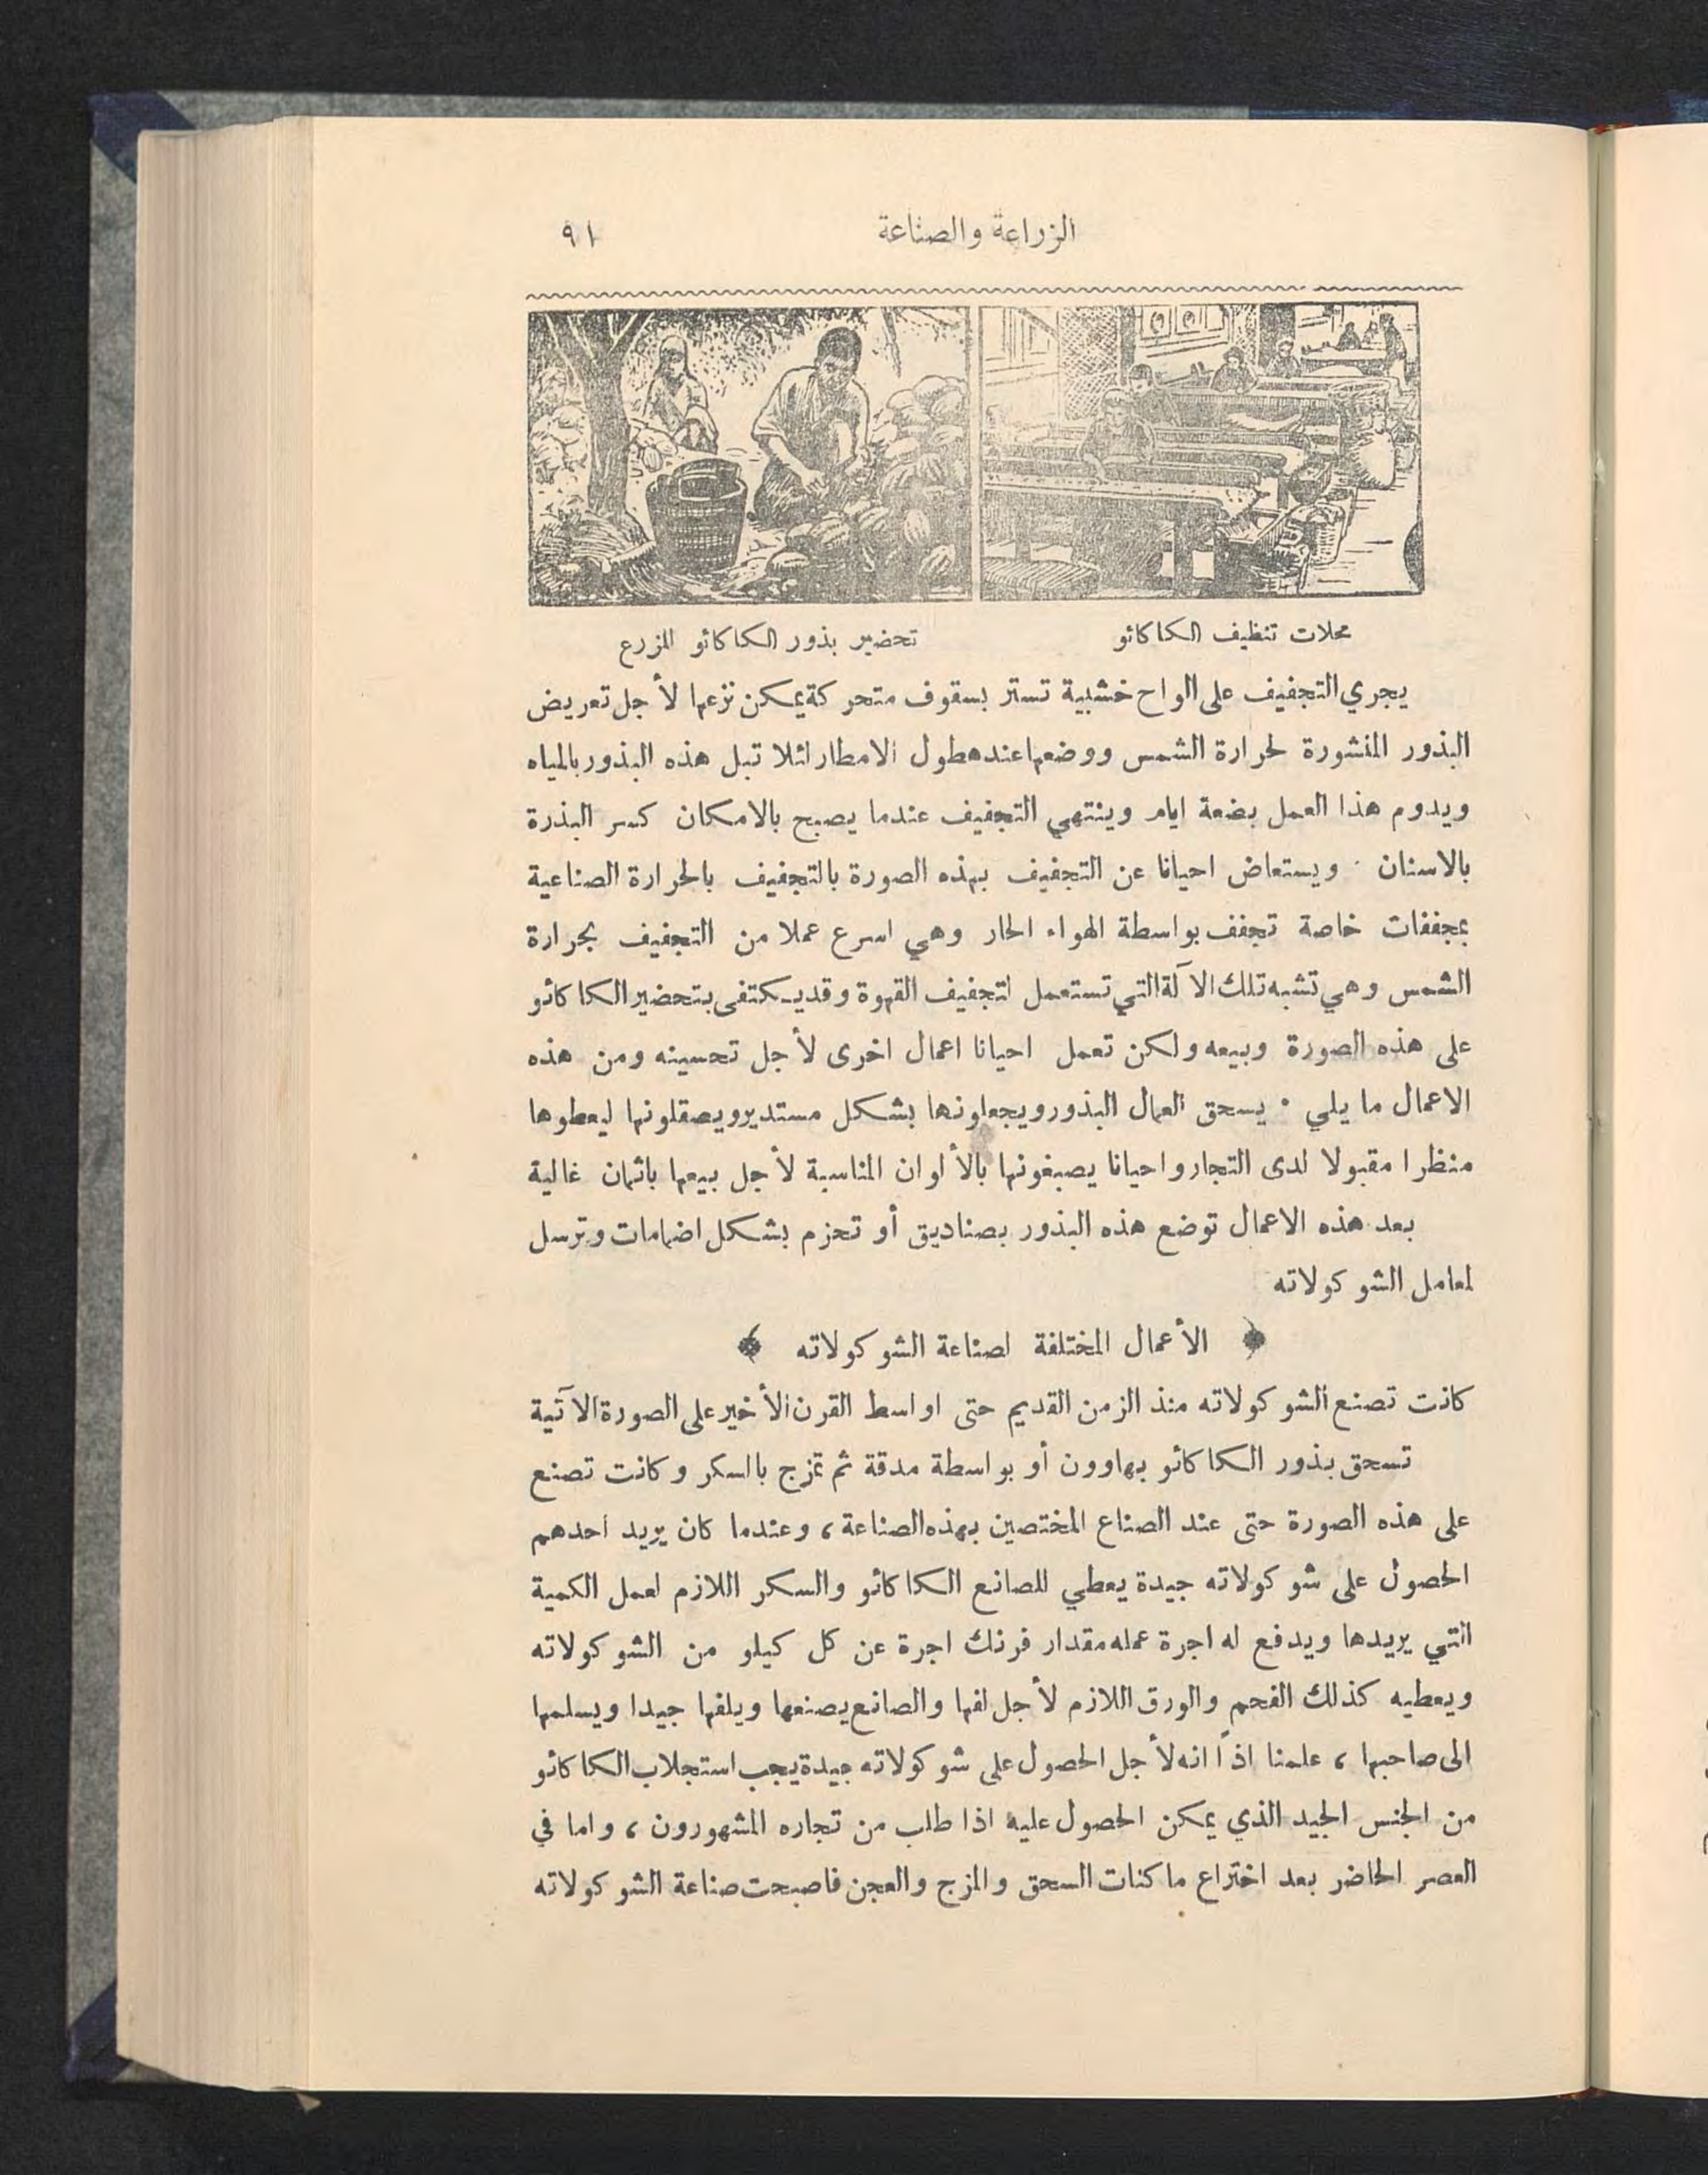 الزراعة والصناعة
٩١
محلات تنظيف الكاكائو
تحضير بذور الكاكائو للزرع
يجري التجفيف على الواح خشبية تستر بسقوف متحركة يمكن نزعها لأجل تعريض
البذور المنشورة لحرارة الشمس ووضعها عند هطول الامطار لئلا تبل هذه البذور بالمياه
ويدوم هذا العمل بضعة ايام وينتهي التجفيف عندما يصبح بالامكان كسر البذرة
بالاسنان . ويستعاض احيانا عن التجفيف بهذه الصورة بالتجفيف بالحرارة الصناعية
بمجففات خاصة تجفف بواسطة الهواء الحار وهي اسرع عملا من التجفيف بحرارة
الشمس وهي تشبه تلك الآلة التي تستعمل لتجفيف القهوة وقد يكتفى بتحضير الكاكائو
على هذه الصورة وبيعه ولكن تعمل احيانا اعمال اخرى لأجل تحسينه ومن هذه
الاعمال ما يلي . يسحق العمال البذور ويجعلونها بشكل مستدير ويصقلونها ليعطوها
منظرا مقبولا لدى التجار واحيانا يصبغونها بالألوان المناسبة لأجل بيعها باثمان غالية
بعد هذه الاعمال توضع هذه البذور بصناديق أو تحزم بشكل اضمامات وترسل
لمعامل الشوكولاته
﴿ الأعمال المختلفة لصناعة الشوكولاته ﴾
كانت تصنع الشوكولاته منذ الزمن القديم حتى اواسط القرن الأخير على الصورة الآتية
تسحق بذور الكاكائو بهاوون أو بواسطة مدقة ثم تمزج بالسكر وكانت تصنع
على هذه الصورة حتى عند الصناع المختصين بهذه الصناعة ، وعندما كان يريد احدهم
الحصول على شوكولاته جيدة يعطي للصانع الكاكائو والسكر اللازم لعمل الكمية
التي يريدها ويدفع له اجرة عمله مقدار فرنك اجرة عن كل كيلو من الشوكولاته
ويعطيه كذلك الفحم والورق اللازم لأجل لفها والصانع يصنعها ويلفها جيدا ويسلمها
الى صاحبها ، علمنا اذاً انه لأجل الحصول على شوكولاته جيدة يجب استجلاب الكاكائو
من الجنس الجيد الذي يمكن الحصول عليه اذا طلب من تجاره المشهورون ، واما في
العصر الحاضر بعد اختراع ماكنات السحق والمزج والعجن فاصبحت صناعة الشوكولاته